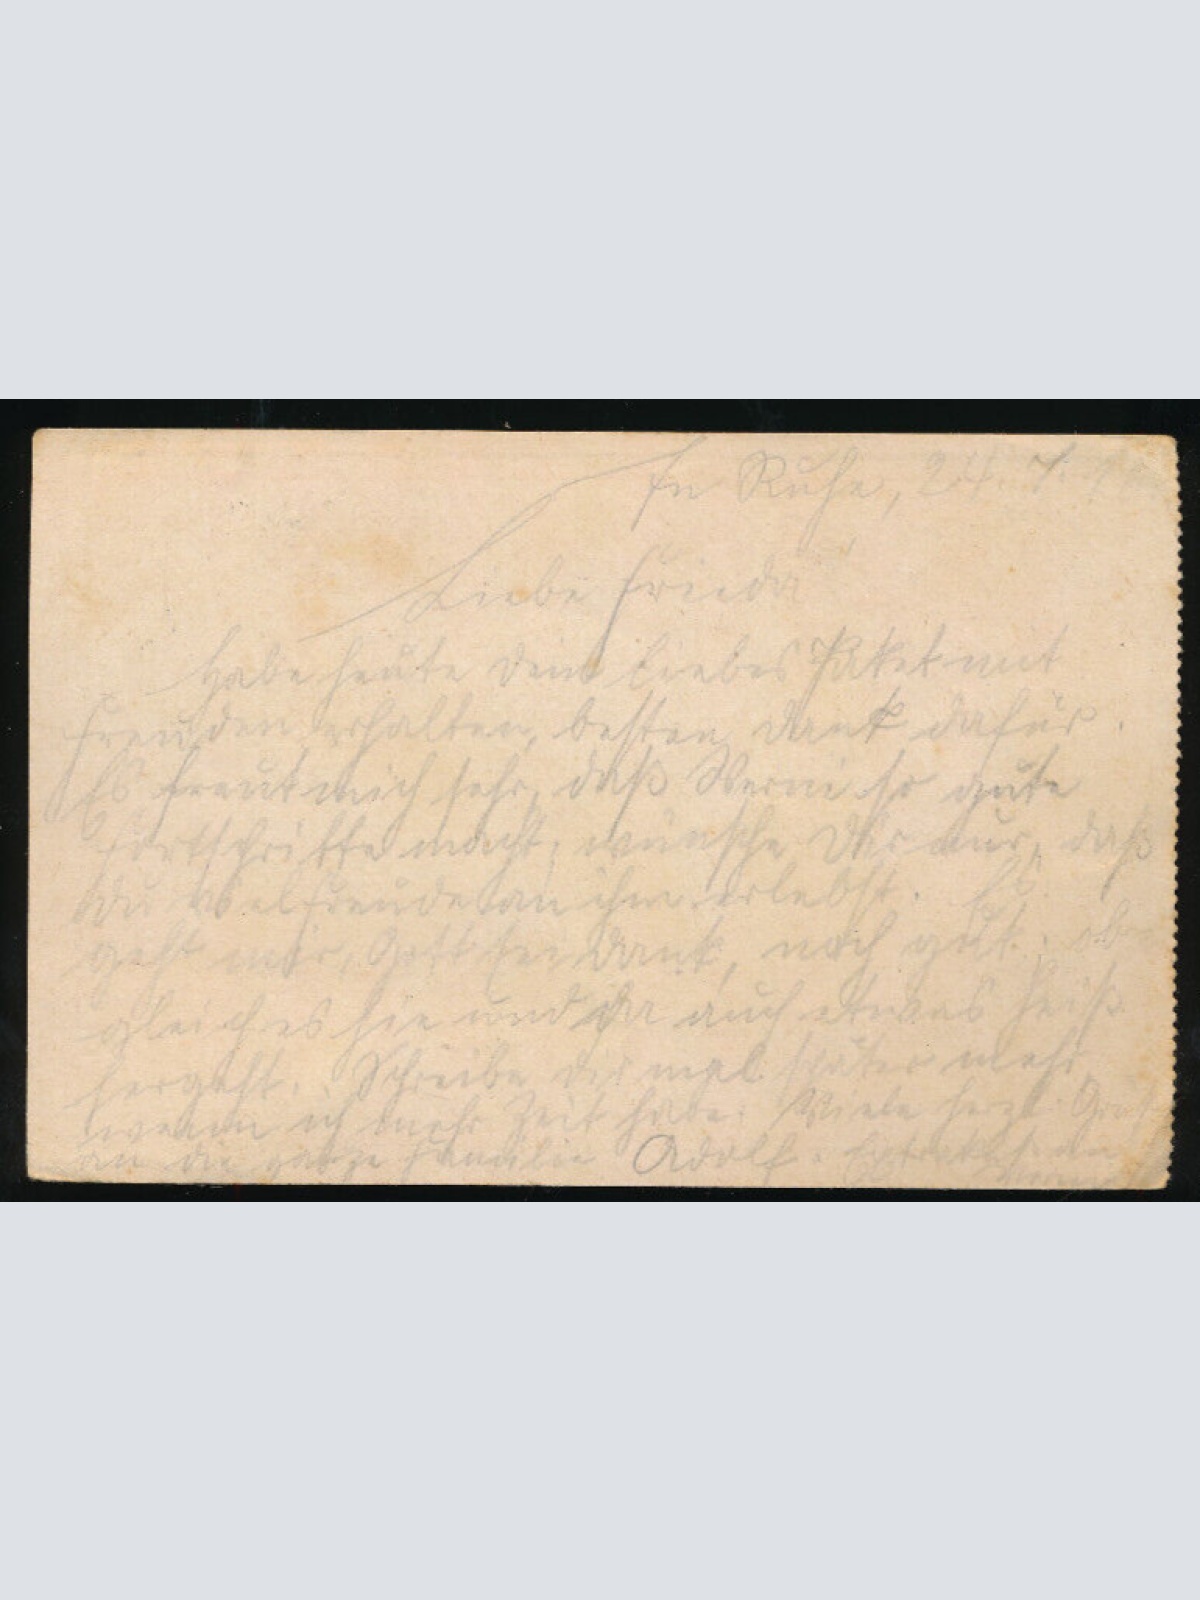 In Ruhe, 24. 7.
Liebe Frieda!
Habe heute dein liebes Paket mit
Freuden erhalten, besten Dank dafür.
Es freut mich sehr, daß Werni so gute
Fortschritte macht, wünsche Dir nur, daß
Du viel Freude an ihm erlebst. Es
geht mir, Gott sei Dank, noch gut, ob
gleich es hie und da auch etwas heiß
hergeht. Schreibe dir mal später mehr,
wenn ich mehr Zeit habe. Viele herzl. Grüße
an die ganze Familie Adolf.